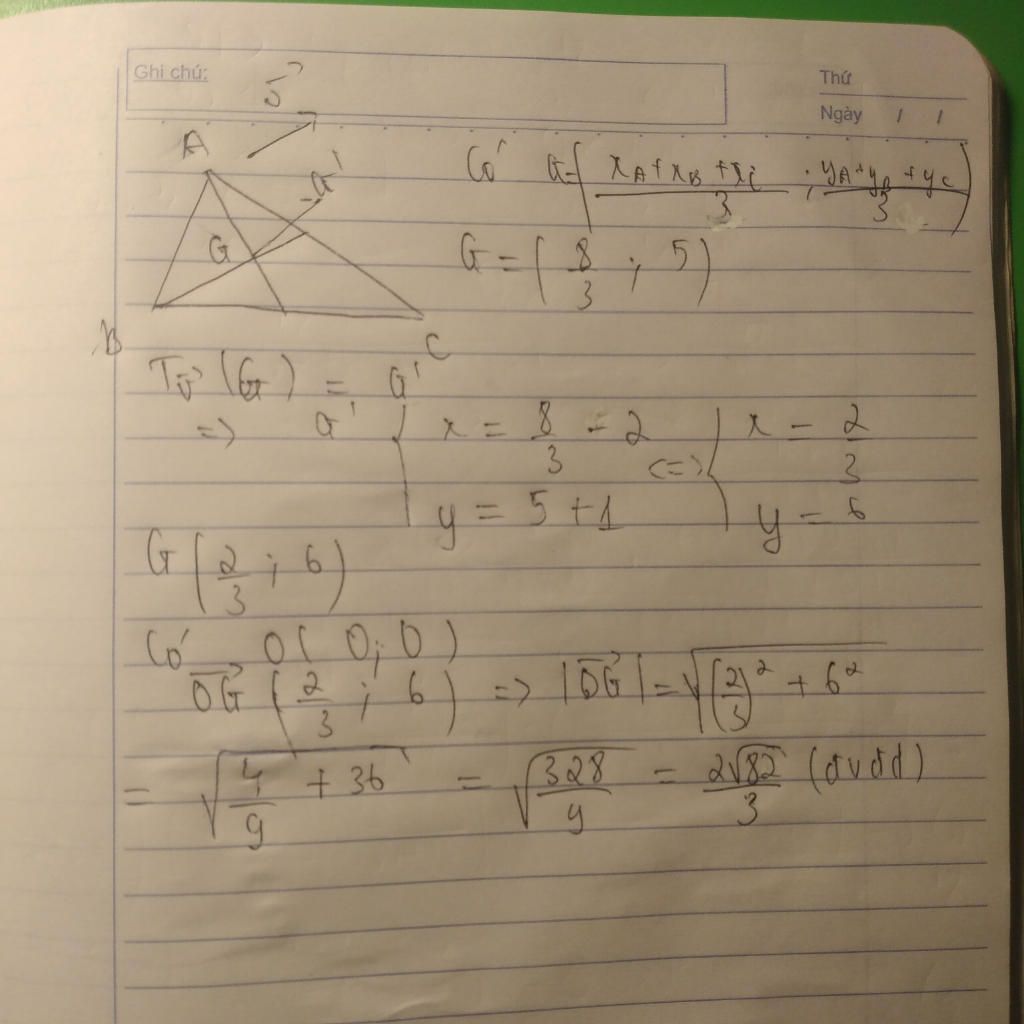 Ghi chú:
Thứ
Ngày / /
v⃗
A
G'
G
B
C
Có G = ( (xA + xB + xC)/3 ; (yA + yB + yC)/3 )
G = ( 8/3 ; 5 )
Tv⃗ (G) = G'
=> G' { x = 8/3 - 2 <=> { x = 2/3
y = 5 + 1 y = 6
G ( 2/3 ; 6 )
Có O ( 0 ; 0 )
OG⃗ ( 2/3 ; 6 ) => |OG⃗| = √((2/3)² + 6²)
= √(4/9 + 36) = √(328/9) = 2√82/3 (đvđd)